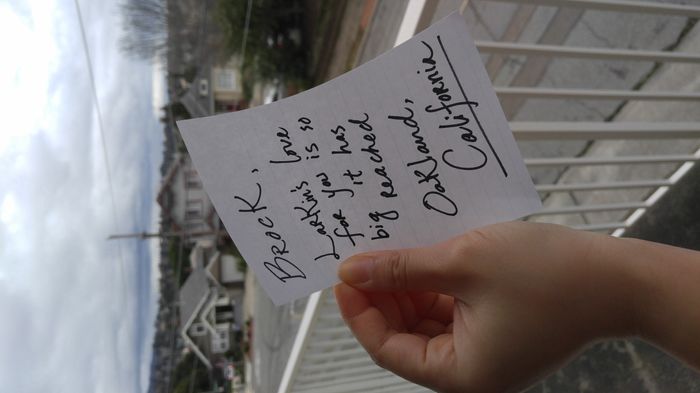 Brock,
Larkin's love
for you is so
big it has
reached
Oakland,
California